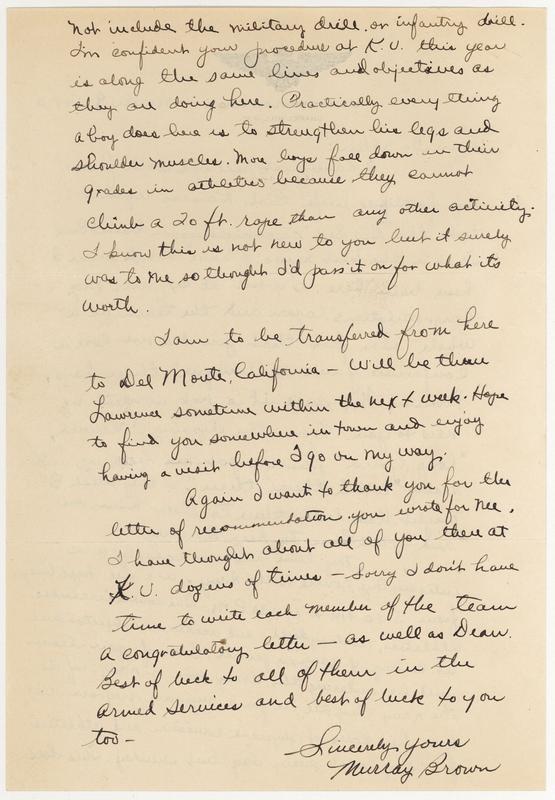 not include the military drill, or infantry drill.
I'm confident your procedure at K.U. this year
is along the same lines and objectives as
they are doing here. Practically every thing
a boy does here is to strengthen his legs and
shoulder muscles. More boys fall down in their
grades in athletics because they cannot
climb a 20 ft. rope than any other activity.
I know this is not new to you but it surely
was to me so thought I'd pass it on for what its
worth.
I am to be transferred from here
to Del Monte, California – Will be thru
Lawrence sometime within the next week. Hope
to find you somewhere in town and enjoy
having a visit before I go on my way.
Again I want to thank you for the
letter of recommendation you wrote for me.
I have thought about all of you there at
K.U. dozens of times – Sorry I don't have
time to write each member of the team
a congratulatory letter – as well as Dean.
Best of luck to all of them in the
armed services and best of luck to you
too –
Sincerely yours
Murray Brown